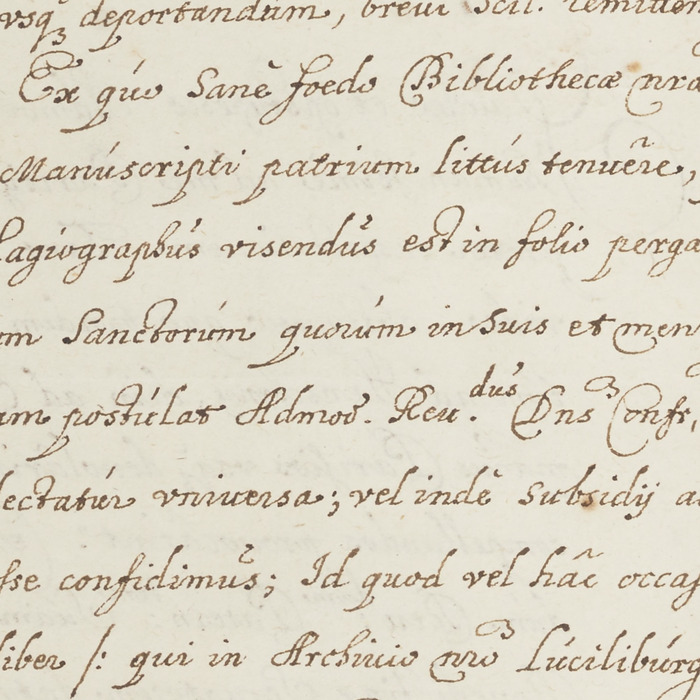 vsqꝫ deportandum, brevi scil. remitten
Ex quo sanè foedo Bibliothecæ nra
Manuscripti patrium littus tenuêre,
agiographus visendus est in folio perga
m Sanctorum quorum in suis et men
am postulat Admod. Reu.dus Dns Confr.
lectatur vniuersa; vel indè subsidij a
sse confidimus; Id quod vel hâc occas
liber /: qui in Archiuio nro Luciliburg